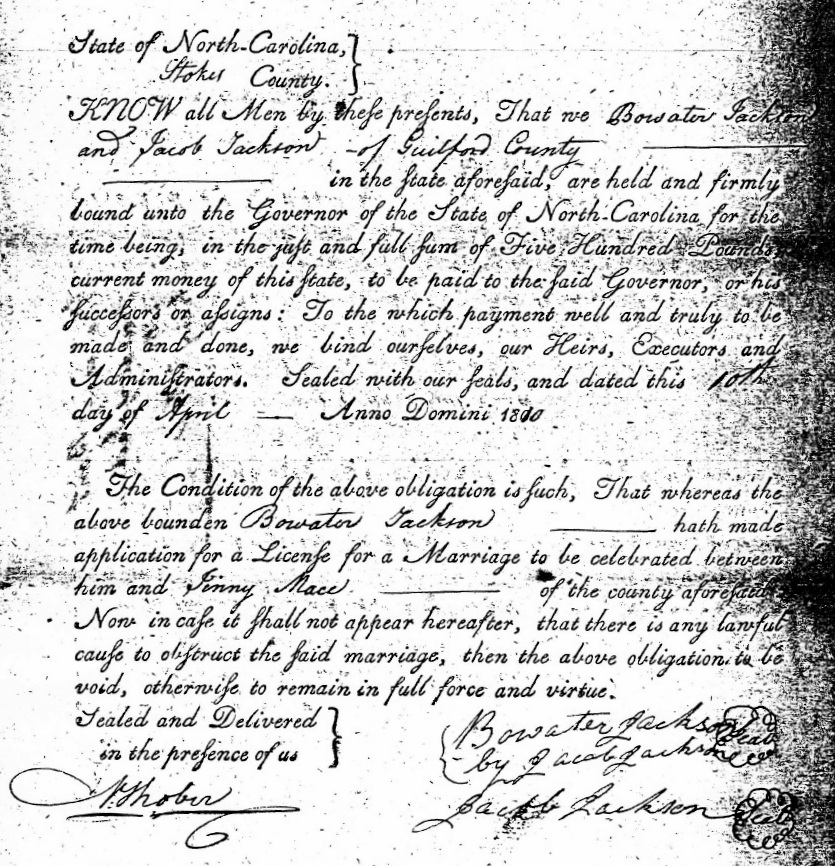 State of North-Carolina, }
Stokes County. }
KNOW all Men by theſe preſents, That we Bowater Jackson
and Jacob Jackson - of Guilford County
in the ſtate aforeſaid, are held and firmly
bound unto the Governor of the State of North-Carolina for the
time being, in the juſt and full ſum of Five Hundred Pounds,
current money of this ſtate, to be paid to the ſaid Governor, or his
ſucceſſors or aſsigns: To the which payment well and truly to be
made and done, we bind ourſelves, our Heirs, Executors and
Adminiſtrators. Sealed with our ſeals, and dated this 10th
day of April — Anno Domini 1800
The Condition of the above obligation is ſuch, That whereas the
above bounden Bowater Jackson hath made
application for a Licenſe for a Marriage to be celebrated between
him and Jinny Mace of the county aforeſaid,
Now in caſe it ſhall not appear hereafter, that there is any lawful
cauſe to obſtruct the ſaid marriage, then the above obligation to be
void, otherwiſe to remain in full force and virtue.
Sealed and Delivered }
in the preſence of us
Bowater Jackson Seal
by Jacob Jackson
Jacob Jackson Seal